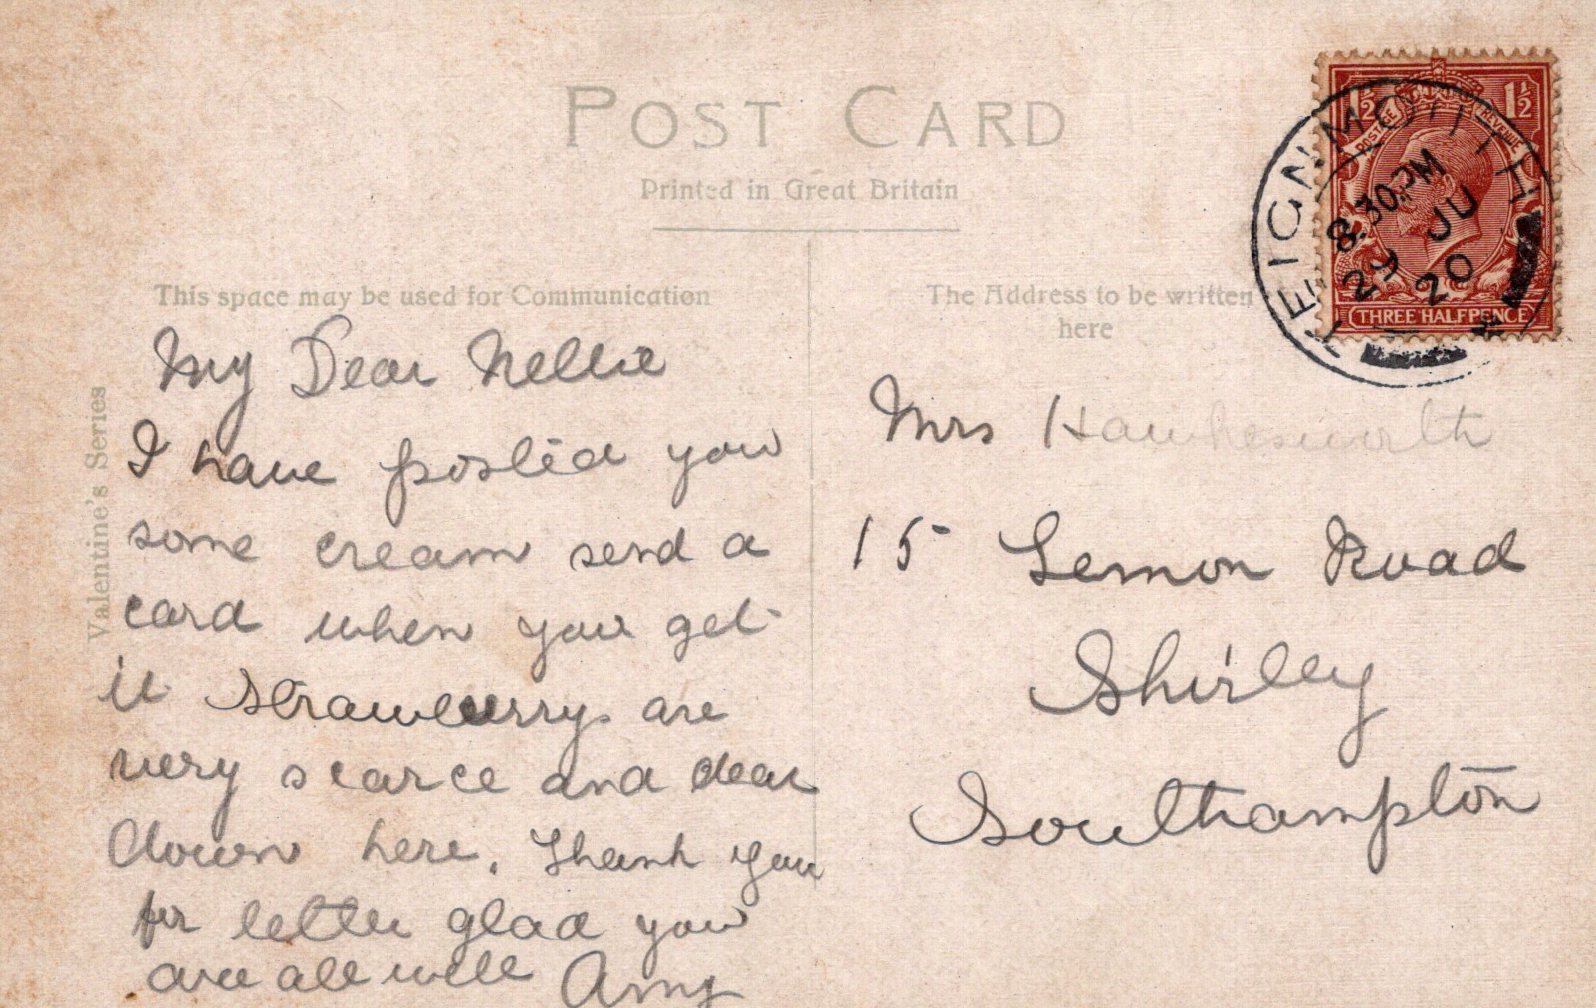 POST CARD
Printed in Great Britain
This space may be used for Communication
The Address to be written
here
Valentine's Series
1½ 1½
POSTAGE REVENUE
THREE HALFPENCE
TEIGNMOUTH
8.30 PM
29 JU
20
My Dear Nellie
I have posted you
some cream send a
card when you get
it Strawberrys are
very scarce and dear
down here. Thank you
for letter glad you
are all well Amy
Mrs Hawkesworth
15 Lemon Road
Shirley
Southampton